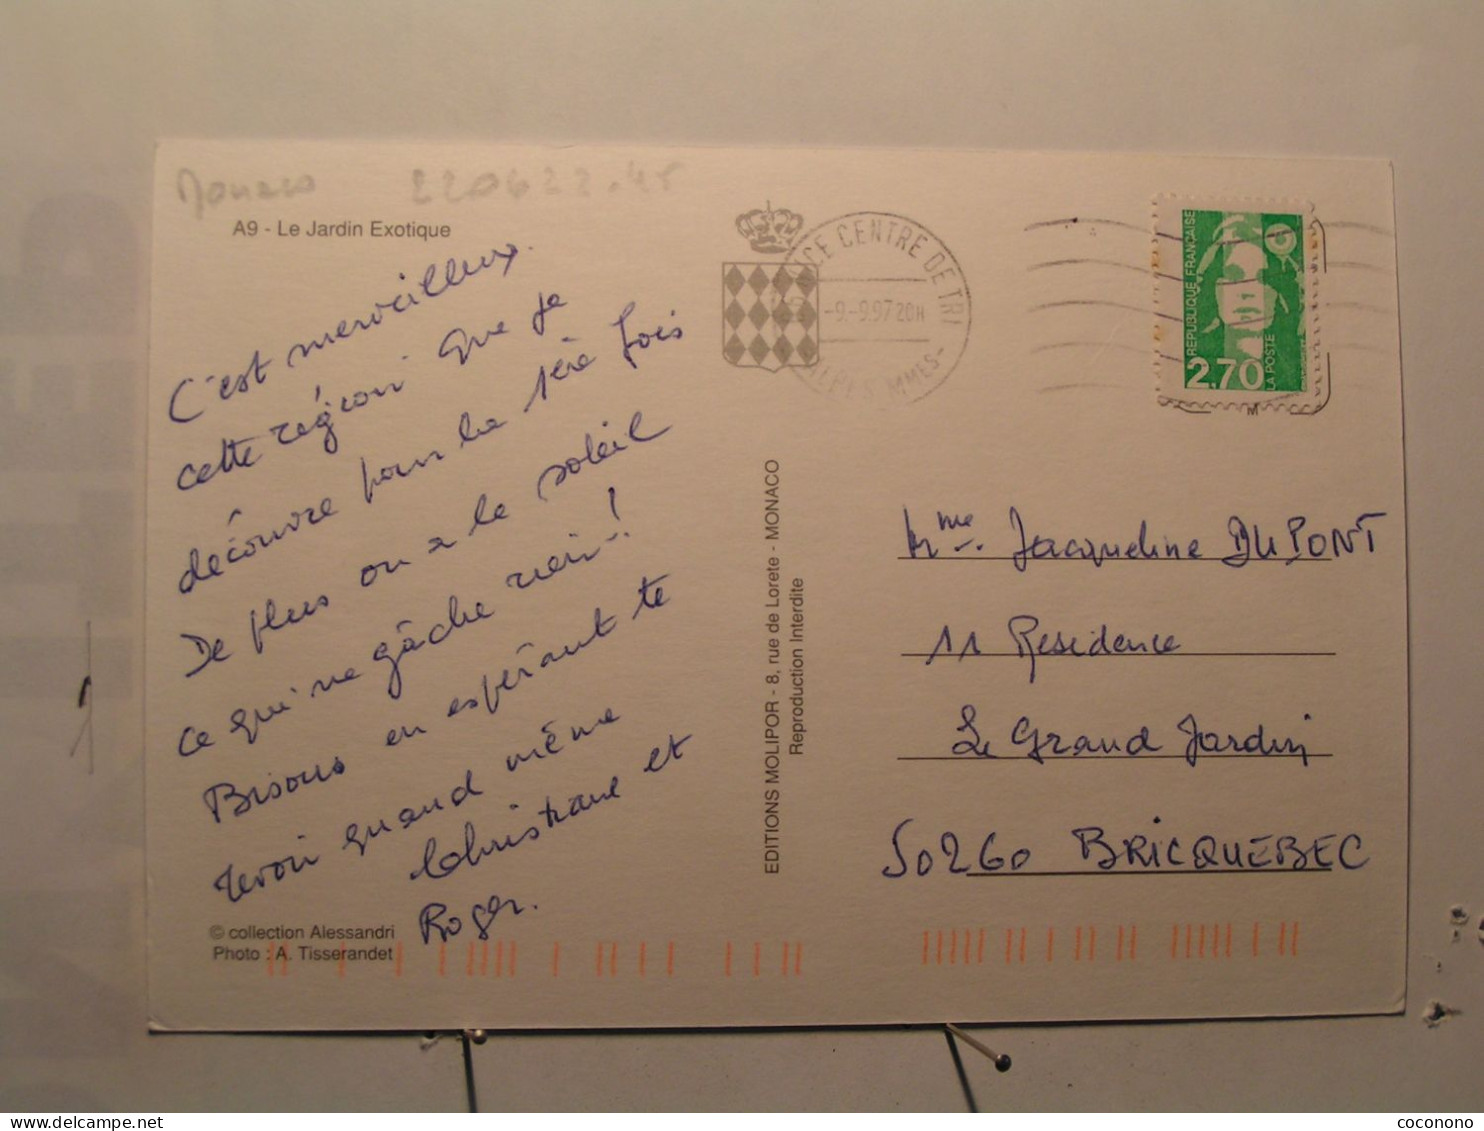 Monaco 220622.45
A9 - Le Jardin Exotique
C'est merveilleux.
cette région que je
découvre pour la 1ère fois
De plus on a le soleil
ce qui ne gâche rien !
Bisous en espérant te
revoir quand même
Christiane et
Roger.
© collection Alessandri
Photo : A. Tisserandet
EDITIONS MOLIPOR - 8, rue de Lorete - MONACO
Reproduction Interdite
CENTRE DE TRI
-9.-9.97 20H
REPUBLIQUE FRANÇAISE
2,70
LA POSTE
M
Mme Jacqueline DUPONT
11 Residence
Le Grand Jardin
50260 BRICQUEBEC
coconono